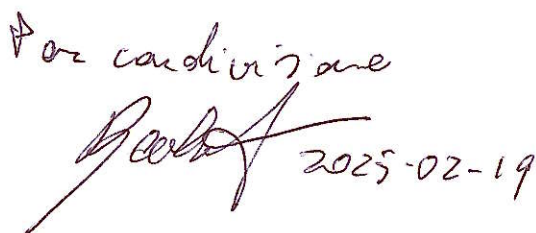 Per condivisione
2025-02-19